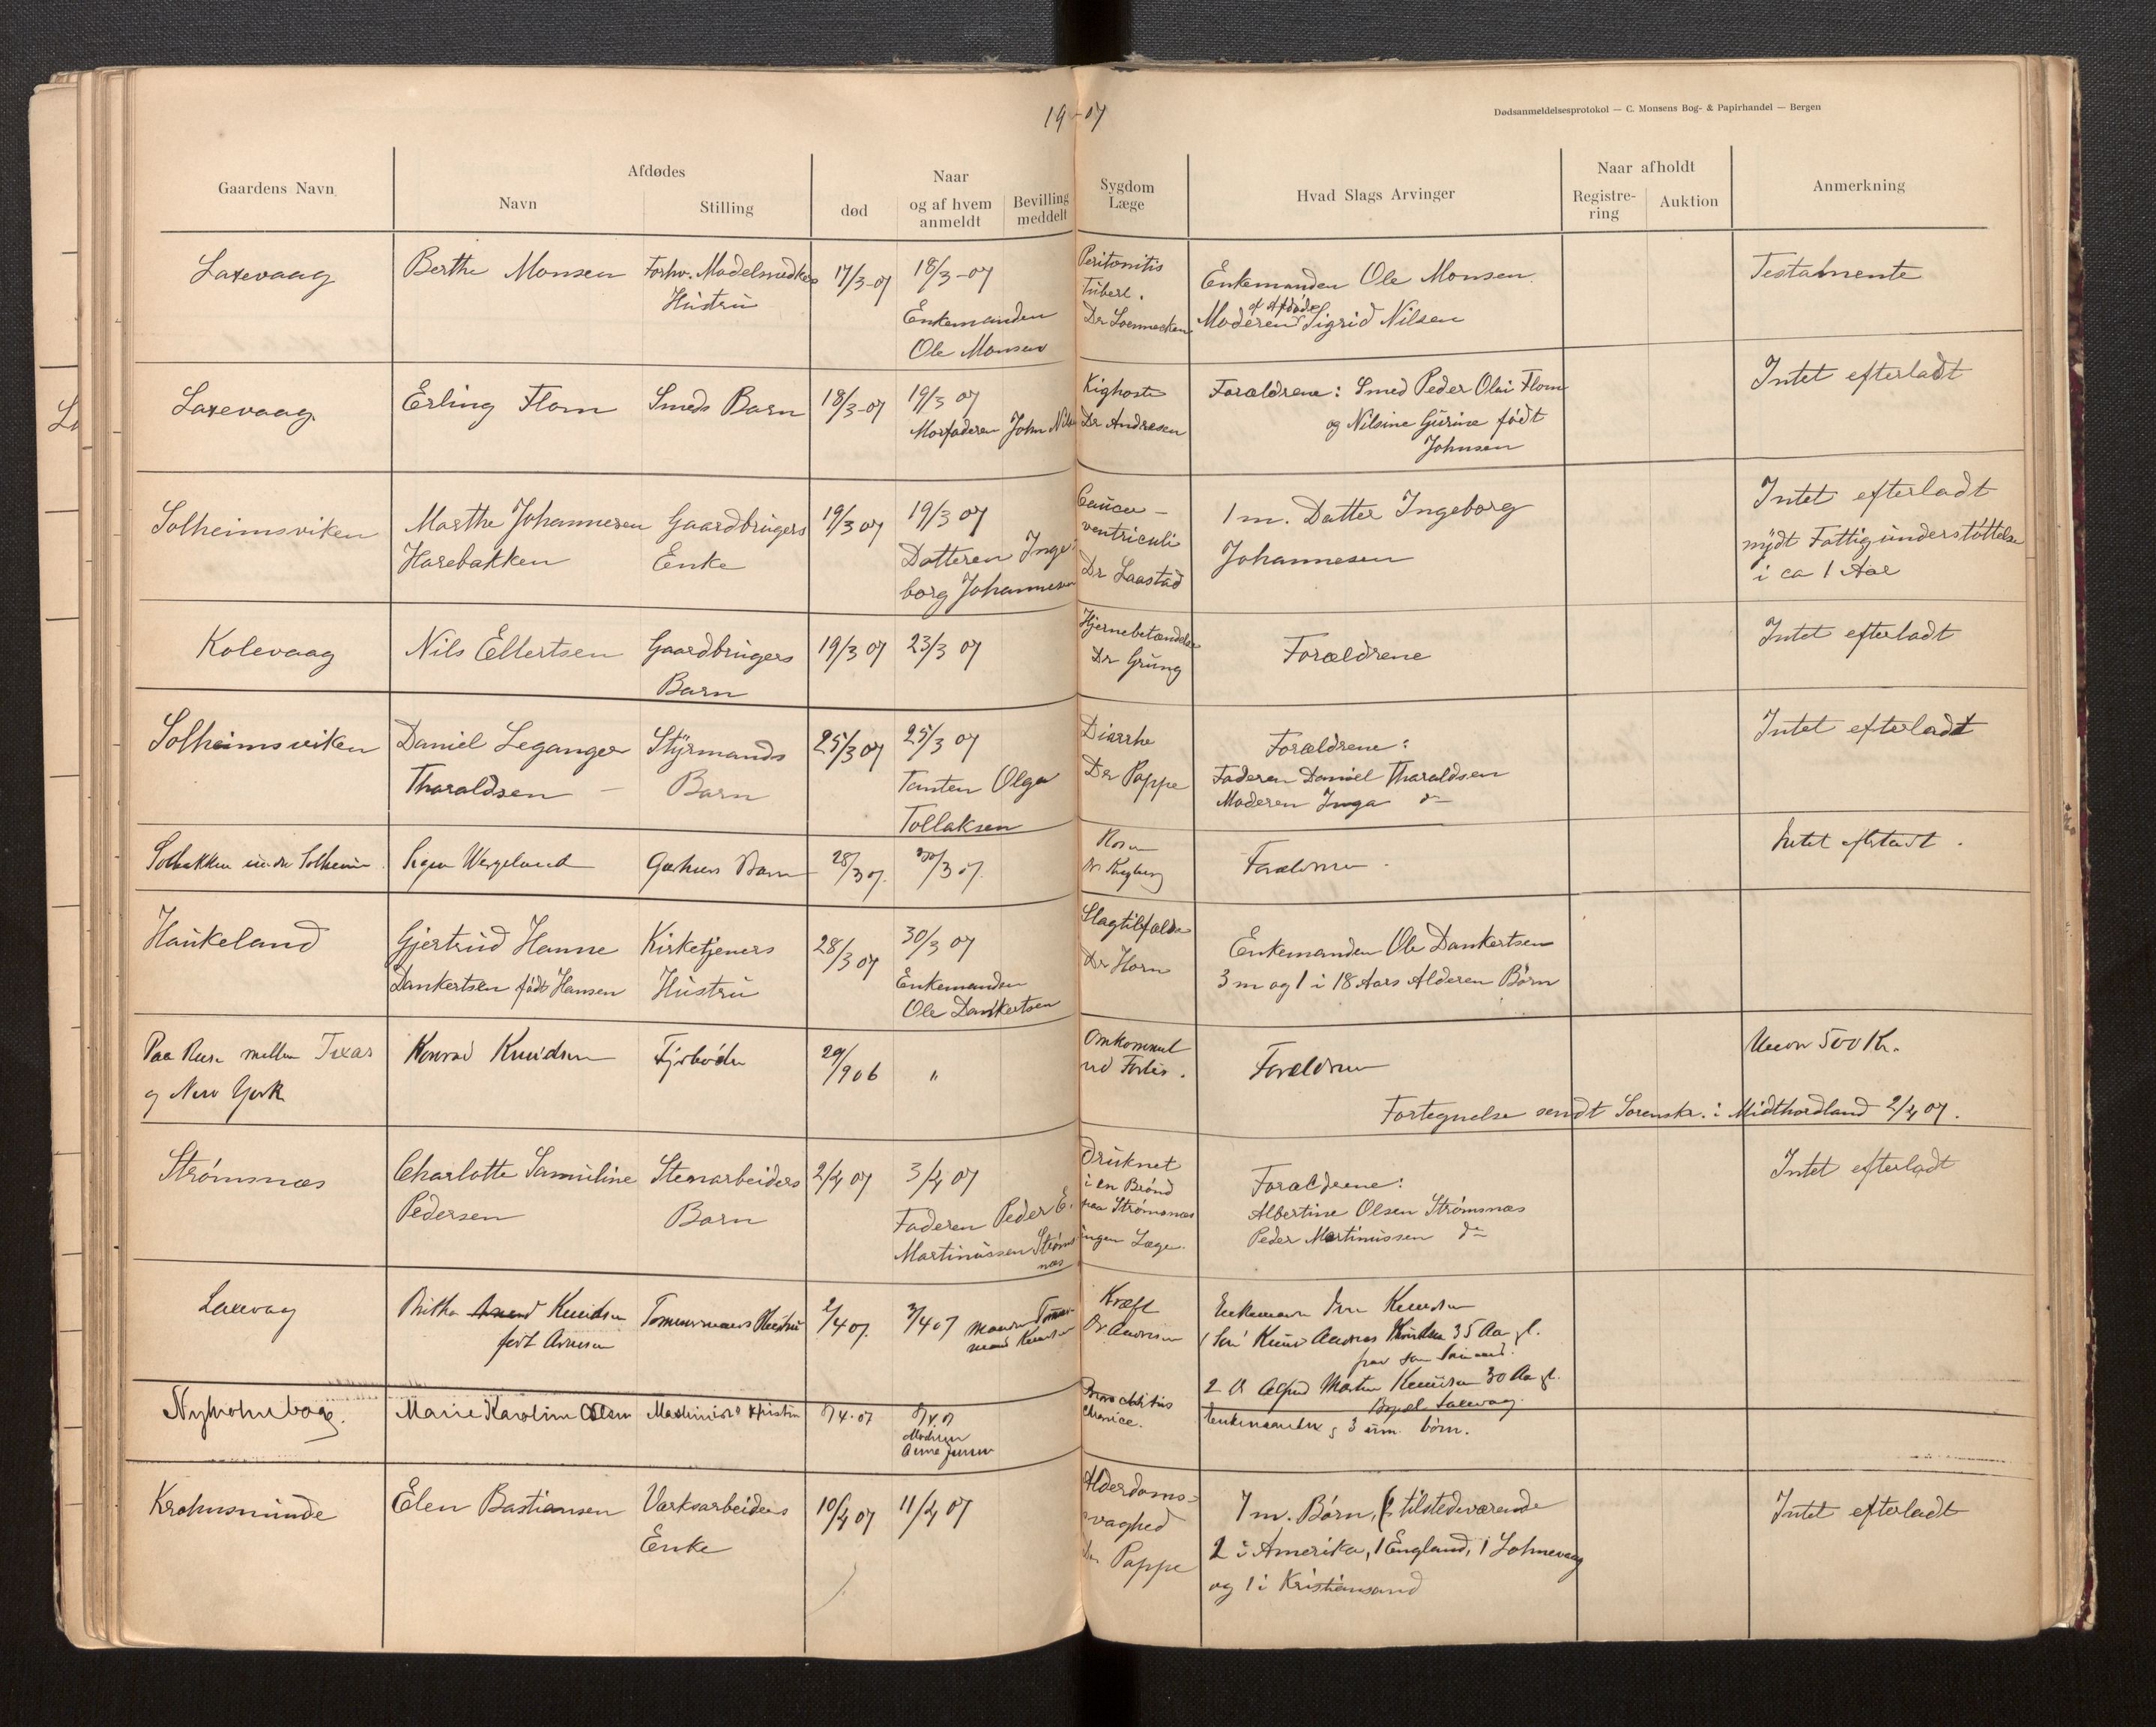 19-07
Dødsanmeldelsesprotokol — C. Monsens Bog- & Papirhandel — Bergen
Gaardens Navn
Afdødes
Navn
Stilling
Naar
død
og af hvem anmeldt
Bevilling meddelt
Sygdom Læge
Hvad Slags Arvinger
Naar afholdt
Registrering
Auktion
Anmerkning
Laxevaag
Berthe Monsen
Forhv. Modelsnedkers
Hustru
17/3-07
18/3-07
Enkemanden
Ole Monsen
Peritonitis
Tuberl.
Dr Loennecken
Enkemanden Ole Monsen.
af afdøde
Moderen Sigrid Nilsen
Testamente
Laxevaag
Erling Flom
Smeds Barn
18/3-07
19/3 07
Morfaderen John Nils
Kighoste
Dr Andresen
Forældrene: Smed Peder Olai Flom
og Nilsine Gurine født
Johnsen
Intet efterladt
Solheimsviken
Marthe Johannesen
Harebakken
Gaardbrugers
Enke
19/3 07
19/3 07
Datteren Inge-
borg Johannesen
Cancer -
ventriculi
Dr Laastad
1 m. Datter Ingeborg
Johannesen
Intet efterladt
nydt Fattigunderstøttelse
i ca 1 Aar
Kolevaag
Nils Ellertsen
Gaardbrugers
Barn
19/3 07
23/3 07
Hjernebetændelse
Dr Grung
Forældrene
Intet efterladt
Solheimsviken
Daniel Leganger
Tharaldsen
Styrmands
Barn
25/3 07
25/3 07
Tanten Olga
Tollaksen
Diarrhe
Dr Pappe
Forældrene:
Faderen Daniel Tharaldsen
Moderen Inga do
Intet efterladt
Solbakken Solheim
Wergeland
Barn
28/3 07.
30/3 07.
Rosen
Forældrene
Intet efterladt.
Haukeland
Gjertrud Hanne
Dankertsen født Hansen
Kirketjeners
Hustru
28/3 07
30/3 07
Enkemanden
Ole Dankertsen
Slagtilfælde
Dr Horn
Enkemanden Ole Dankertsen
3 m og 1 i 18 Aars Alderen Børn
Paa Reise mellem Texas
og New York
Konrad Knudsen
Fyrbøder
29/9 06
"
Omkommet
ved Forlis.
Forældrene
500 Kr.
Fortegnelse sendt Sorenskr. i Midthordland 2/4 07.
Strømsnæs
Charlotte Samuline
Pedersen
Stenarbeiders
Barn
2/4 07
3/4 07
Faderen Peder E.
Martinussen Strøms
næs
Druknet
i en Brønd
paa Strømsnæs
ingen Læge.
Forældrene:
Albertine Olsen Strømsnæs
Peder Martinussen do
Intet efterladt
Laxevaag
Britha Knudsen
født Arnesen
Tømmermands Hustru
2/4 07.
3/4 07
Manden Tømmer-
mand Knudsen
Kræft
Dr Andresen
Enkemand Knudsen
1 Søn Knud Andreas Knudsen 35 Aar gl.
2 Alfred Martin Knudsen 30 Aar gl.
Bopæl Laxevaag.
Nyholmebog.
Marie Karoline Olsen
Maskinists Hustru
Moderen
Anne Jensen
Bronchitis
chronica.
Enkemanden og 3 um. børn.
Krohnsminde
Elen Bastiansen
Værksarbeiders
Enke
10/4 07
11/4 07
Alderdoms-
svaghed
Dr. Pappe
7 m. Børn, tilstedeværende
2 i Amerika, 1 England, 1 Johnevaag
og 1 i Kristiansand
Intet efterladt